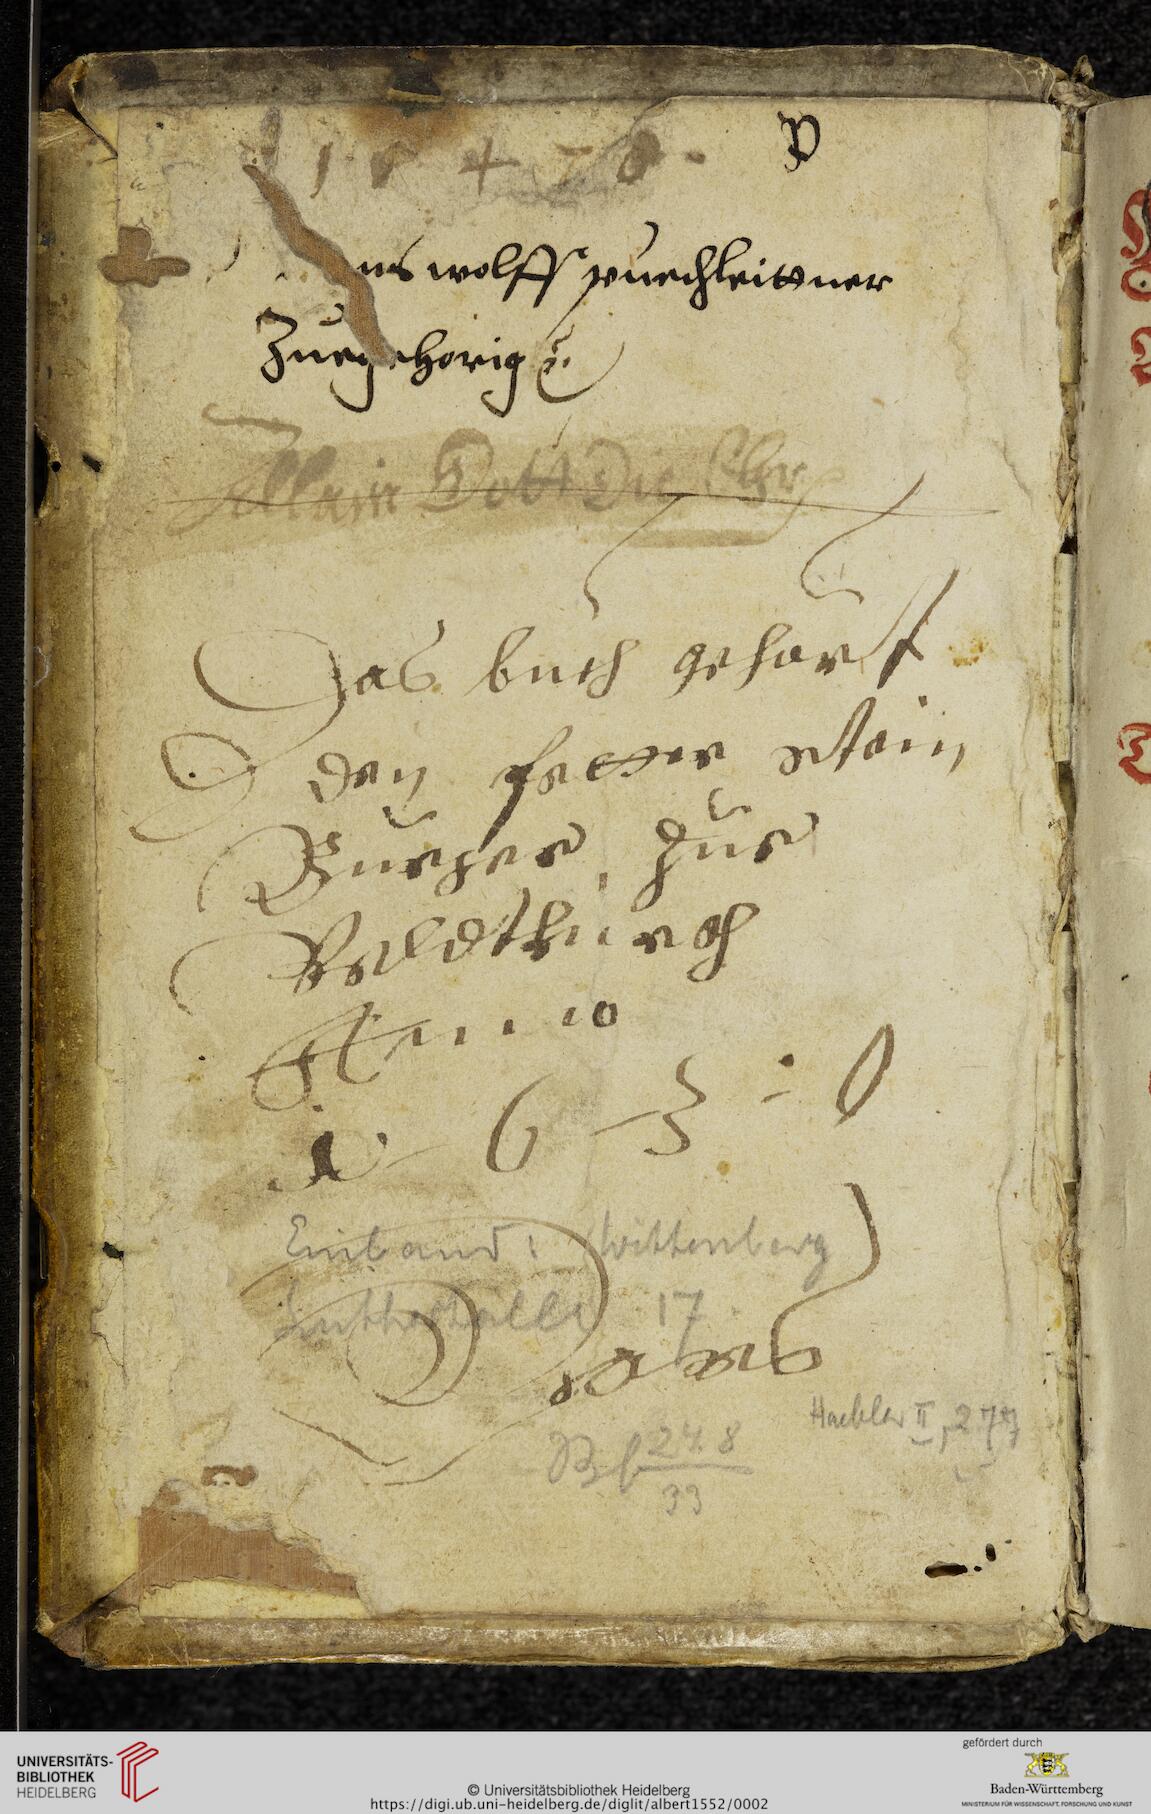 P
ns wolff puechleittner
Zuegehorig
Allain Gott Die Ehr
Das buch gehörtt
den petter stain
Burger zue
Veldtkürch
Anno
1630
Einband: Wittenberg
Lutherhalle 17.
Haebler II, 277
24.8
33
UNIVERSITÄTS-
BIBLIOTHEK
HEIDELBERG
© Universitätsbibliothek Heidelberg
https://digi.ub.uni-heidelberg.de/diglit/albert1552/0002
gefördert durch
Baden-Württemberg
MINISTERIUM FÜR WISSENSCHAFT, FORSCHUNG UND KUNST